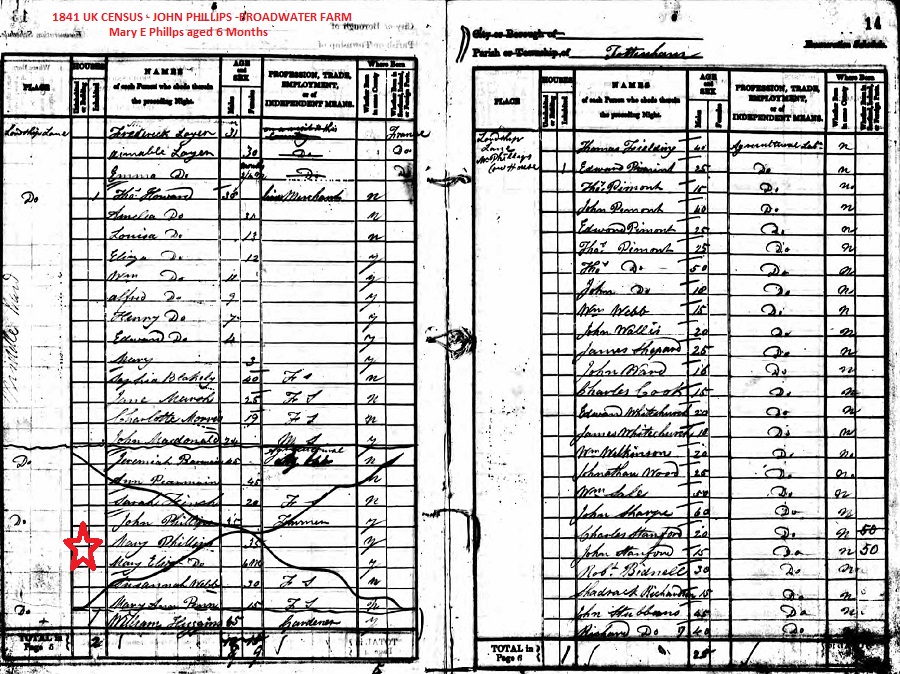 1841 UK CENSUS - JOHN PHILLIPS -BROADWATER FARM
Mary E Phillps aged 6 Months
PLACE
HOUSES
Uninhabited or Building
Inhabited
NAMES
of each Person who abode therein
the preceding Night.
AGE and SEX
Males
Females
PROFESSION, TRADE,
EMPLOYMENT,
or of
INDEPENDENT MEANS.
Where Born
Whether Born in same County
Lordship Lane
Frederick Layer 31 France
30 Do Do
Emma Do Do
Do 1 Thos Howard n
Amelia Do n
Louisa Do 13 n
Eliza Do 12 y
Wm Do 11 y
Alfred Do 9 y
Henry Do 7 y
Edward Do 4 y
Mary 3 y
Sophia Blakely 40 F S n
Jane 25 F S n
Charlotte 19 F S n
John Macdonald M S y
Do Jeremiah n
Ann 45 n
Sarah 20 F S n
Do John Phillips 35 Farmer y
Mary Phillips 35 y
Mary Eliz Do 6M y
Susannah Webb 30 F S n
Mary Ann 15 F S n
Do 1 William Gardener y
TOTAL in Page 5 2
14
City or Borough of
Enumeration Schedule.
Parish or Township of Tottenham
PLACE
HOUSES
Uninhabited or Building
Inhabited
NAMES
of each Person who abode therein
the preceding Night.
AGE and SEX
Males
Females
PROFESSION, TRADE,
EMPLOYMENT,
or of
INDEPENDENT MEANS.
Where Born
Whether Born in same County
Lordship Lane Mr Phillips Cow House
Thomas Fielding 40 Agricultural Lab. n
1 Edward Pimont 25 Do n
Thos. Pimont 15 Do n
John Pimont 40 Do n
Edward Pimont 25 Do n
Thos. Pimont 25 Do n
Thos Do 50 Do n
John Do 18 Do n
Wm Webb 15 Do n
John Wallis 20 Do n
James Shepard 25 Do n
John Ward 16 Do n
Charles Cook 15 Do n
Edward Whitchurch 20 Do n
James Whitchurch 18 Do n
Wm Wilkinson 20 Do n
Johnathan Wood 25 Do n
Wm Sale Do n
John Sharpe 60 Do n
Charles Stanford 20 Do n 50
John Stanford 15 Do n 50
Robt. Bidnell 30 Do n
Shadrach Richardson 15 Do n
John Stubbans 45 Do n
Richard Do 40 Do n
TOTAL in Page 6 1 25